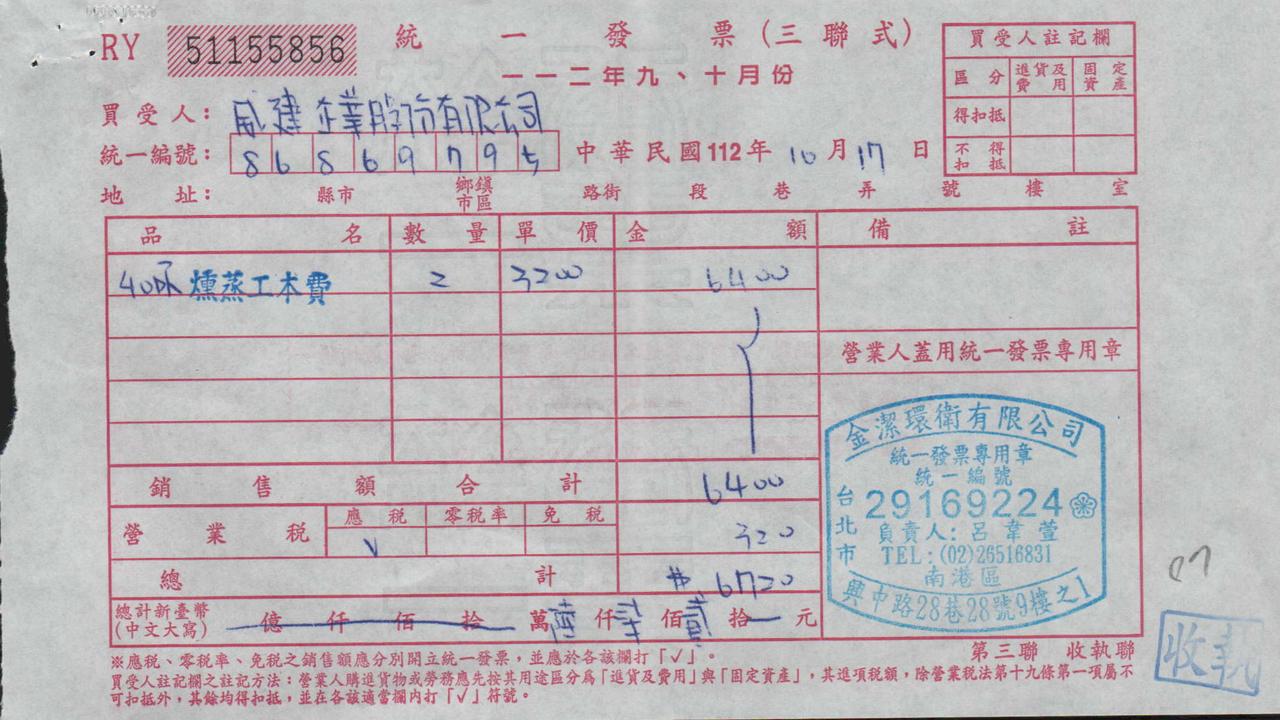 RY 51155856 統一發票(三聯式)
一一二年九、十月份
買受人註記欄
區分 進貨及費用 固定資產
得扣抵
不得扣抵
買受人: 威建企業股份有限公司
統一編號: 86869795 中華民國112年10月17日
地址: 縣市 鄉鎮市區 路街 段 巷 弄 號 樓 室
品名 數量 單價 金額 備註
40呎 燻蒸工本費 2 3200 6400
營業人蓋用統一發票專用章
銷售額合計 6400
營業稅 應稅 零稅率 免稅 320
V
總計 #6720
總計新臺幣(中文大寫) 億仟佰拾萬陸仟柒佰貳拾元
金潔環衛有限公司
統一發票專用章
統一編號
29169224
負責人:呂韋萱
TEL:(02)26516831
台北市南港區
興中路28巷28號9樓之1
第三聯 收執聯
收執
※應稅、零稅率、免稅之銷售額應分別開立統一發票,並應於各該欄打「√」。
買受人註記欄之註記方法:營業人購進貨物或勞務應先按其用途區分為「進貨及費用」與「固定資產」,其進項稅額,除營業稅法第十九條第一項屬不
可扣抵外,其餘均得扣抵,並在各該適當欄內打「√」符號。